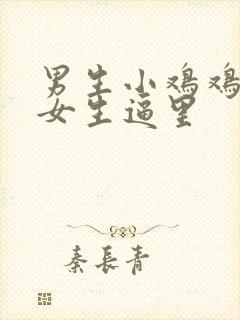 男生小鸡鸡
女生逼里
秦长青